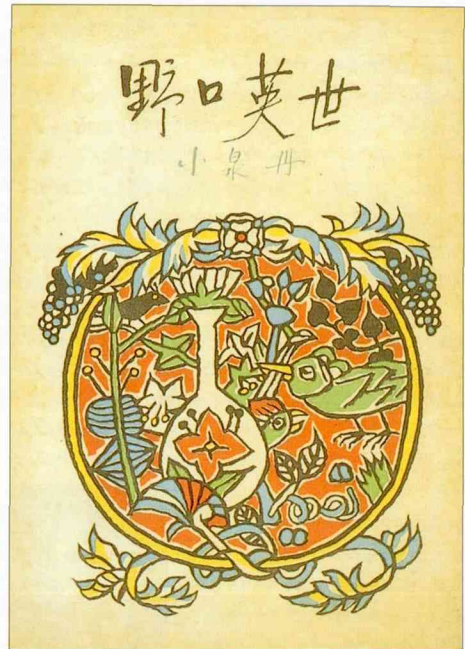 野口英世
小泉丹